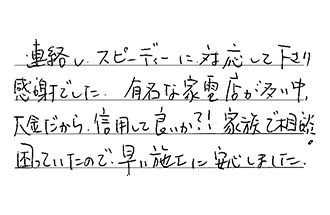 連絡し、スピーディーに対応して下さり
感謝でした。有名な家電店が多い中、
大金だから、信用して良いか?!家族で相談
困っていたので、早い施工に安心しました。